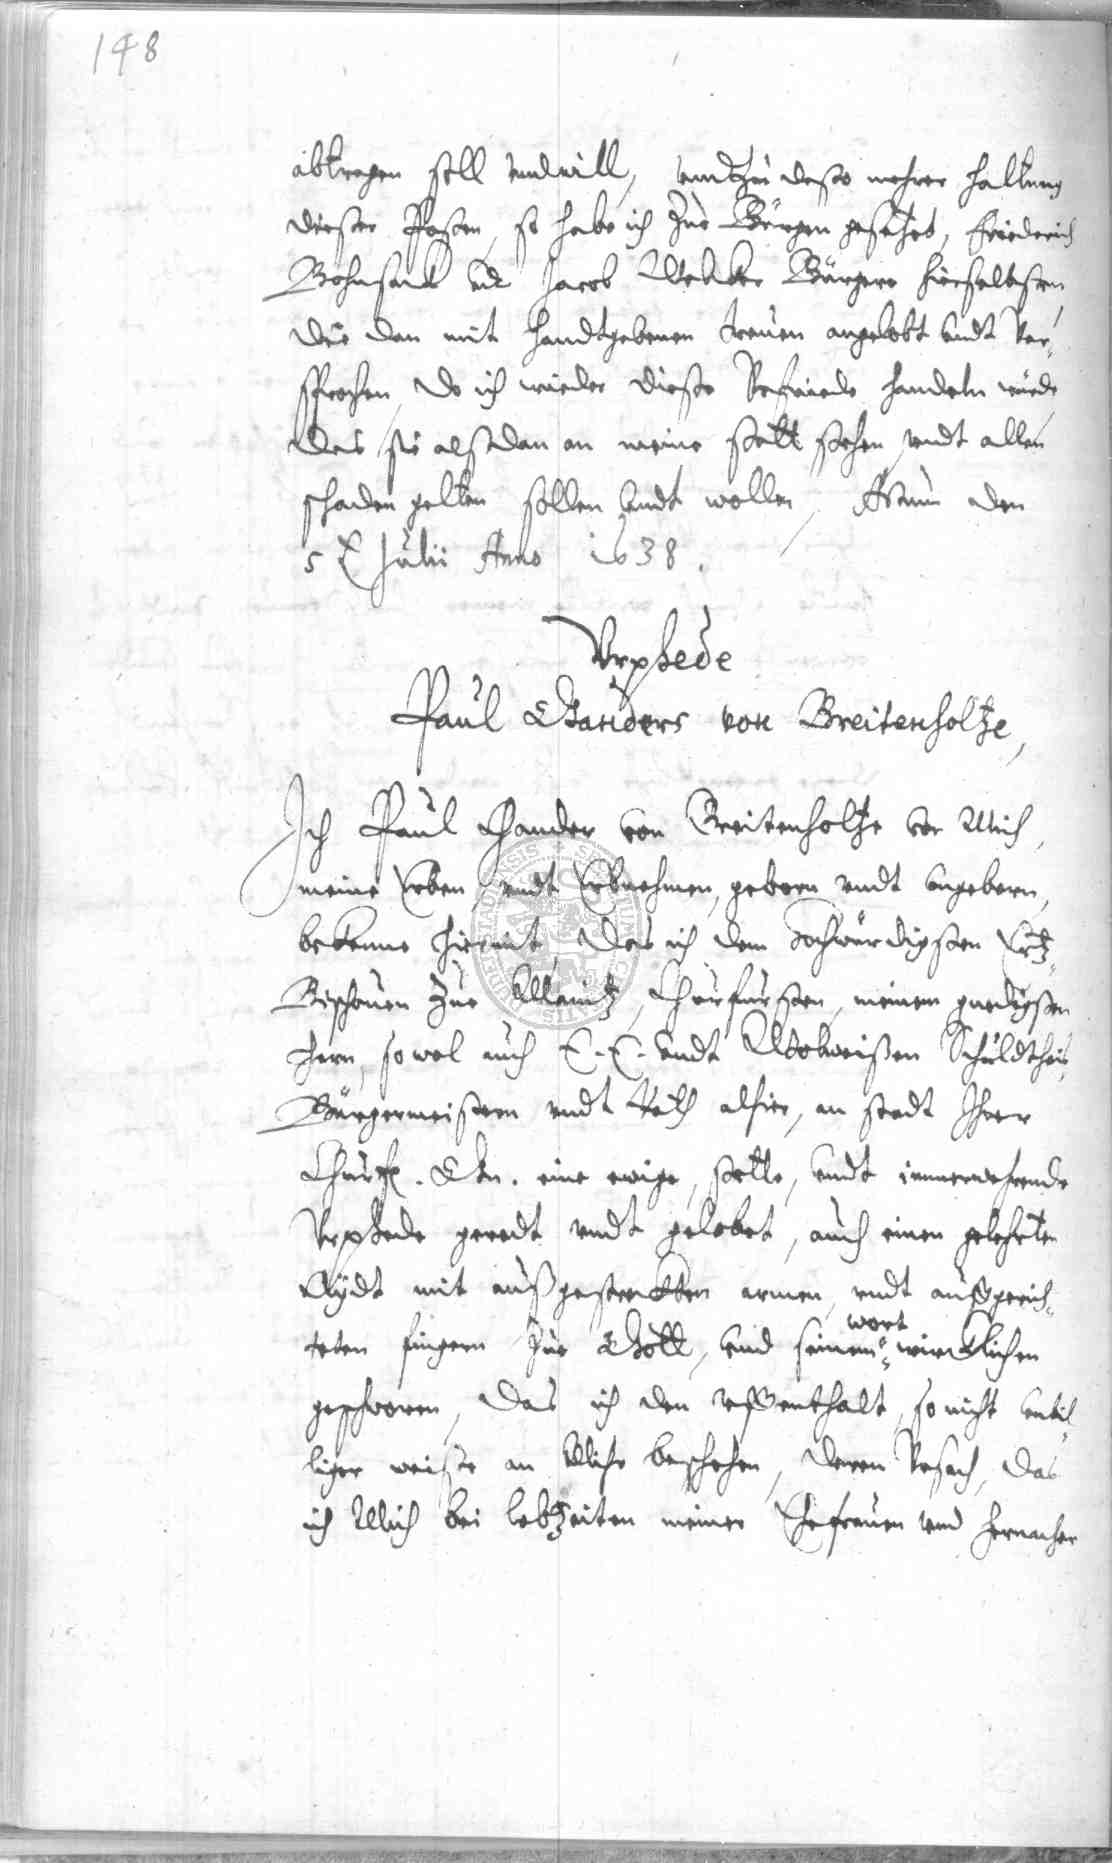 148
abtragen soll vndt will, vndt zu desto mehrer haltung
dießer Posten, so habe ich zue Bürgen gesetzet, Friederich
Bohnsack vndt Jacob Bürgere hierselbsten,
die dan mit handtgebenen treuen angelobt vndt ver-
sprochen, do ich wieder dieße Vrfriede handeln würde
das sie alßdan an meine stett stehen vndt allen
schaden gelten sollen vndt wollen, Actum den
5 t. Julii Anno 1638.
Vrphede
Paul Ganders von Breitenholtze,
Ich Paul Gander von Breitenholtze vor Mich,
meine Erben vndt Erbnehmen, geborn vndt vngeborn,
bekenne hiermit, Das ich dem Hochwürdigsten Ertz-
Bischouen zue Maintz, Churfürsten, meinem gnedigsten
Hern, so wol auch E. E. vndt Wolweißen Schuldtheiß,
Bürgermeistern vndt Rath alhier, an stadt Ihrer
Churfl. Gn. eine ewige, stette, vndt immerwehrende
Vrphede geredt vndt gelobet, auch einen gelehrten
Aydt mit außgestreckten armen, vndt auffgerich-
teten fingern zue Gott, vnd seinem wort wircklichen
geschworen, Das ich den vffenthalt, so nicht vnbil-
liger weiße an Mihr beschehen, deren Vrsach, das
ich Mich bei lebzeiten meiner Ehefrauen vnd hernacher